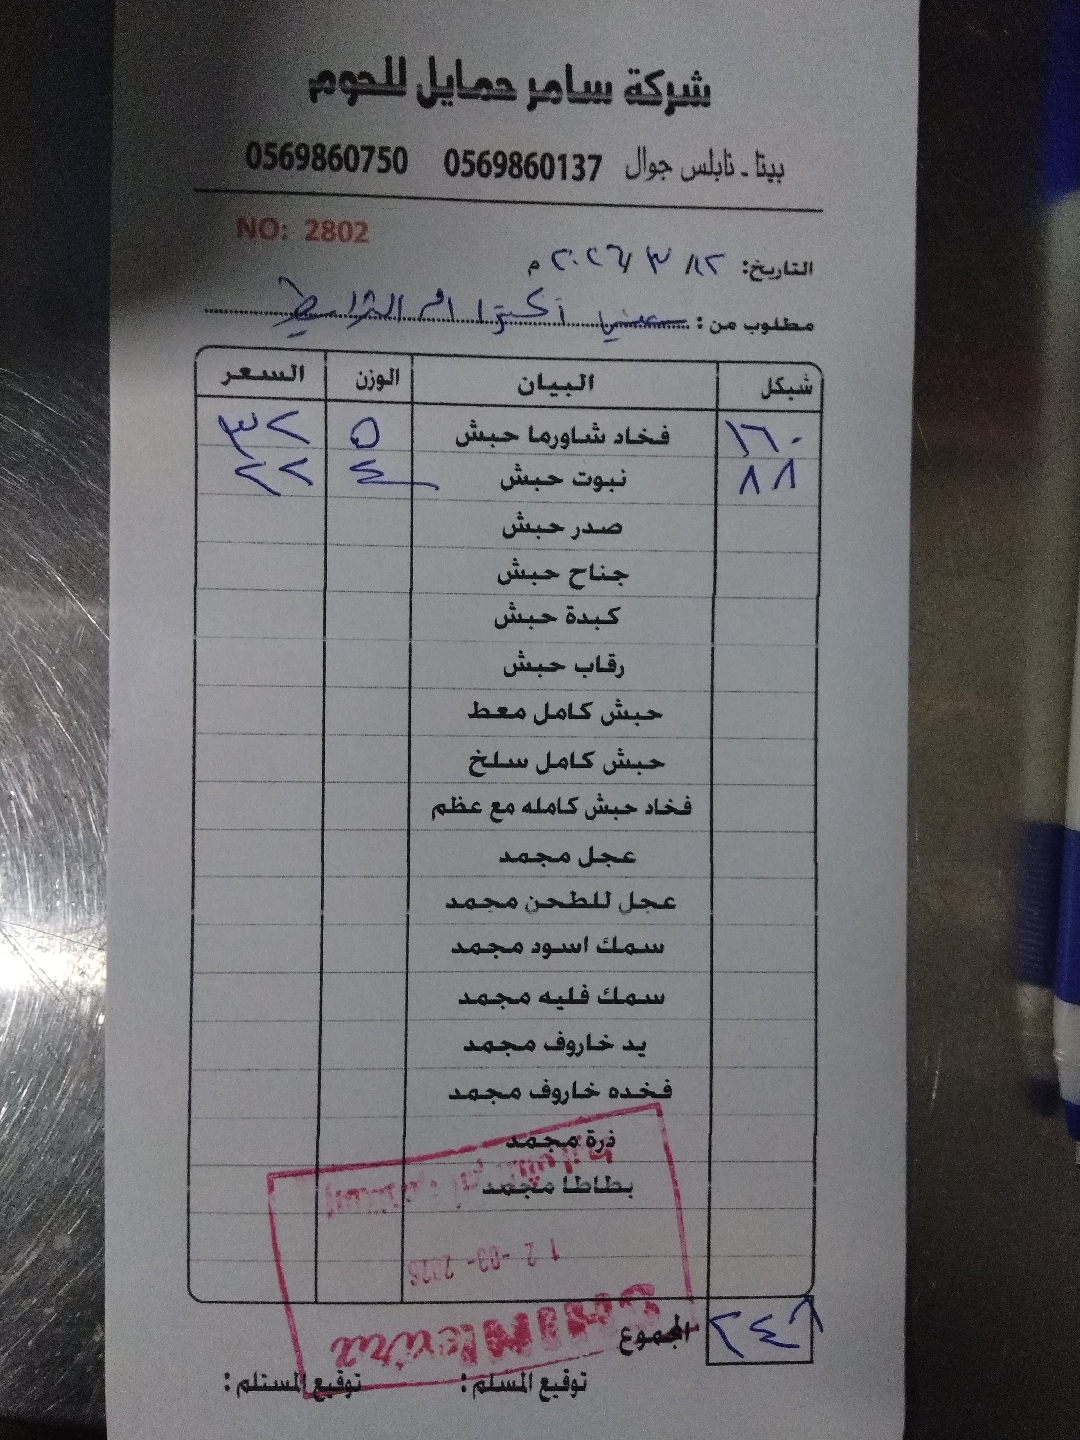 شركة سامر حمايل للحوم
بيتا - نابلس جوال 0569860137 0569860750
NO: 2802
التاريخ: ١٢/ ٣ /٢٠٢٦ م
مطلوب من :
شيكل البيان الوزن السعر
١٦٠ فخاد شاورما حبش ٥ ٣٢
٨٨ نبوت حبش ٤ ٢٢
صدر حبش
جناح حبش
كبدة حبش
رقاب حبش
حبش كامل معط
حبش كامل سلخ
فخاد حبش كامله مع عظم
عجل مجمد
عجل للطحن مجمد
سمك اسود مجمد
سمك فليه مجمد
يد خاروف مجمد
فخده خاروف مجمد
ذرة مجمد
بطاطا مجمد
12 -03- 2026
٢٤٨ المجموع
توقيع المسلم : توقيع المستلم :